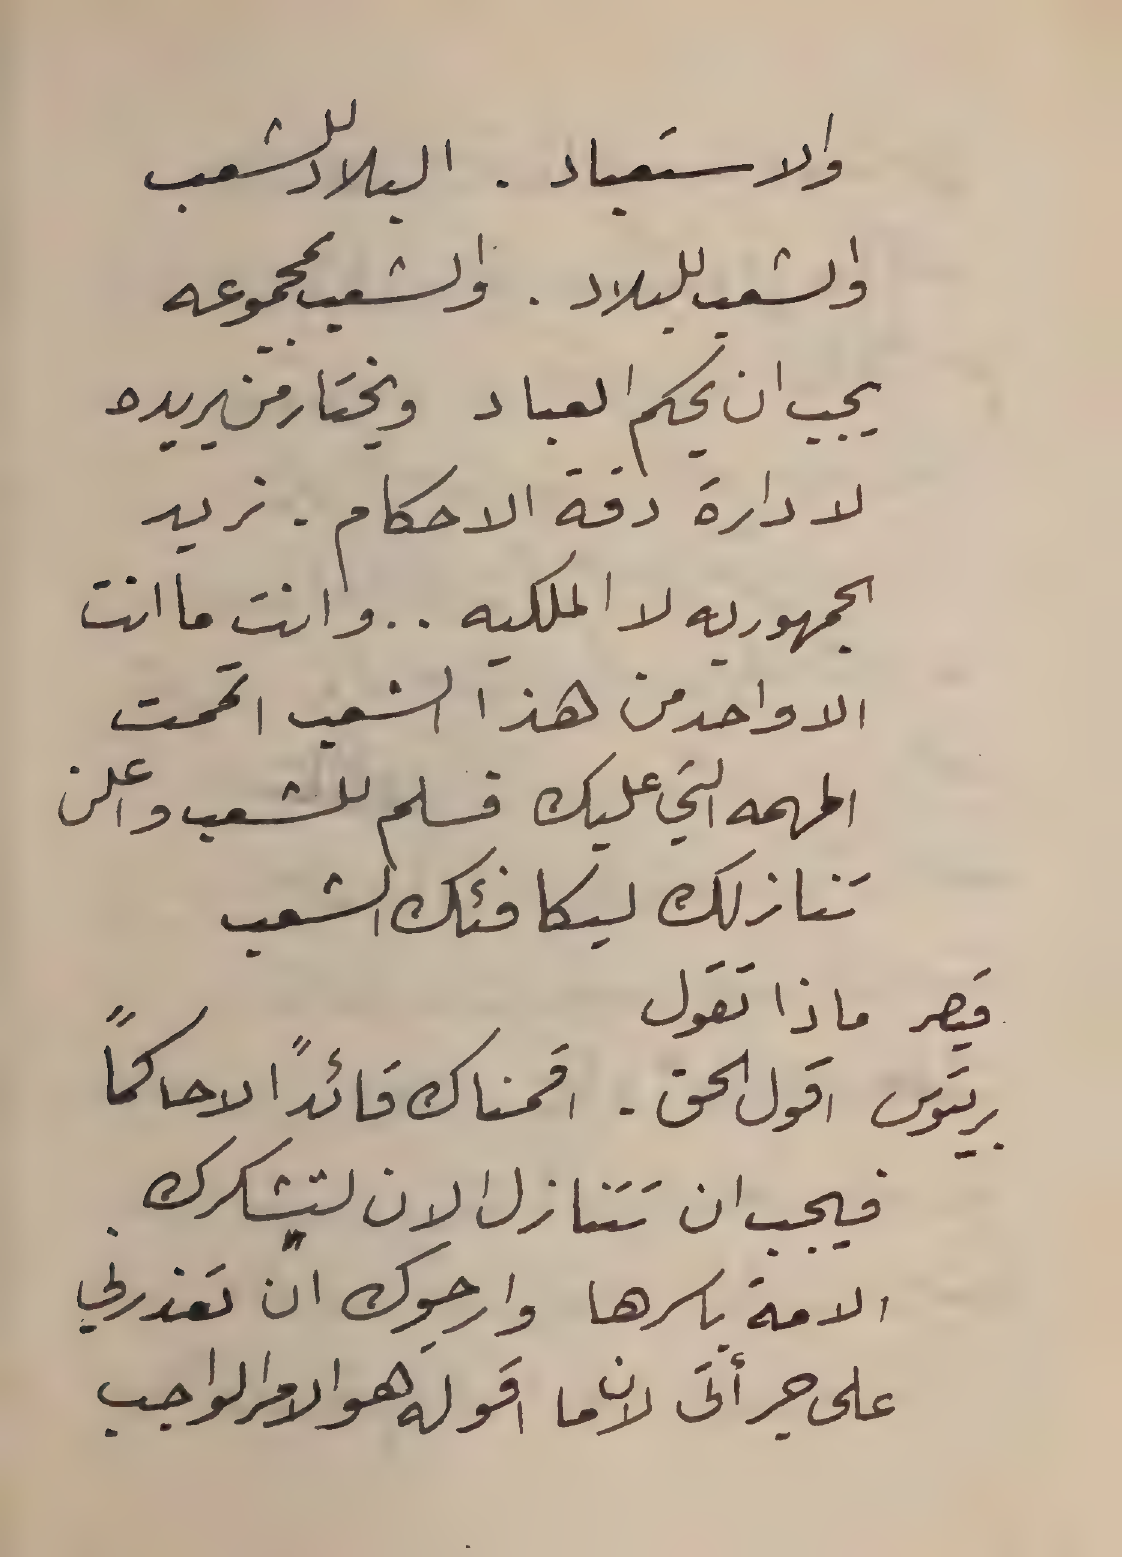 والاستعباد . البلاد للشعب
والشعب للبلاد . والشعب بمجموعه
يجب ان يحكم العباد ويختار من يريده
لادارة دفة الاحكام . نريد
الجمهوريه لا الملكيه .. وانت ما انت
الا واحد من هذا الشعب اتممت
المهمه التي عليك فسلم للشعب واعلن
تنازلك ليكافئك الشعب
قيصر ماذا تقول
بريتوس اقول الحق . اقمناك قائداً لا حاكماً
فيجب ان تتنازل الان لتشكرك
الامة باسرها وارجوك ان تعذرني
على جرأتى لان ما اقوله هو الامر الواجب